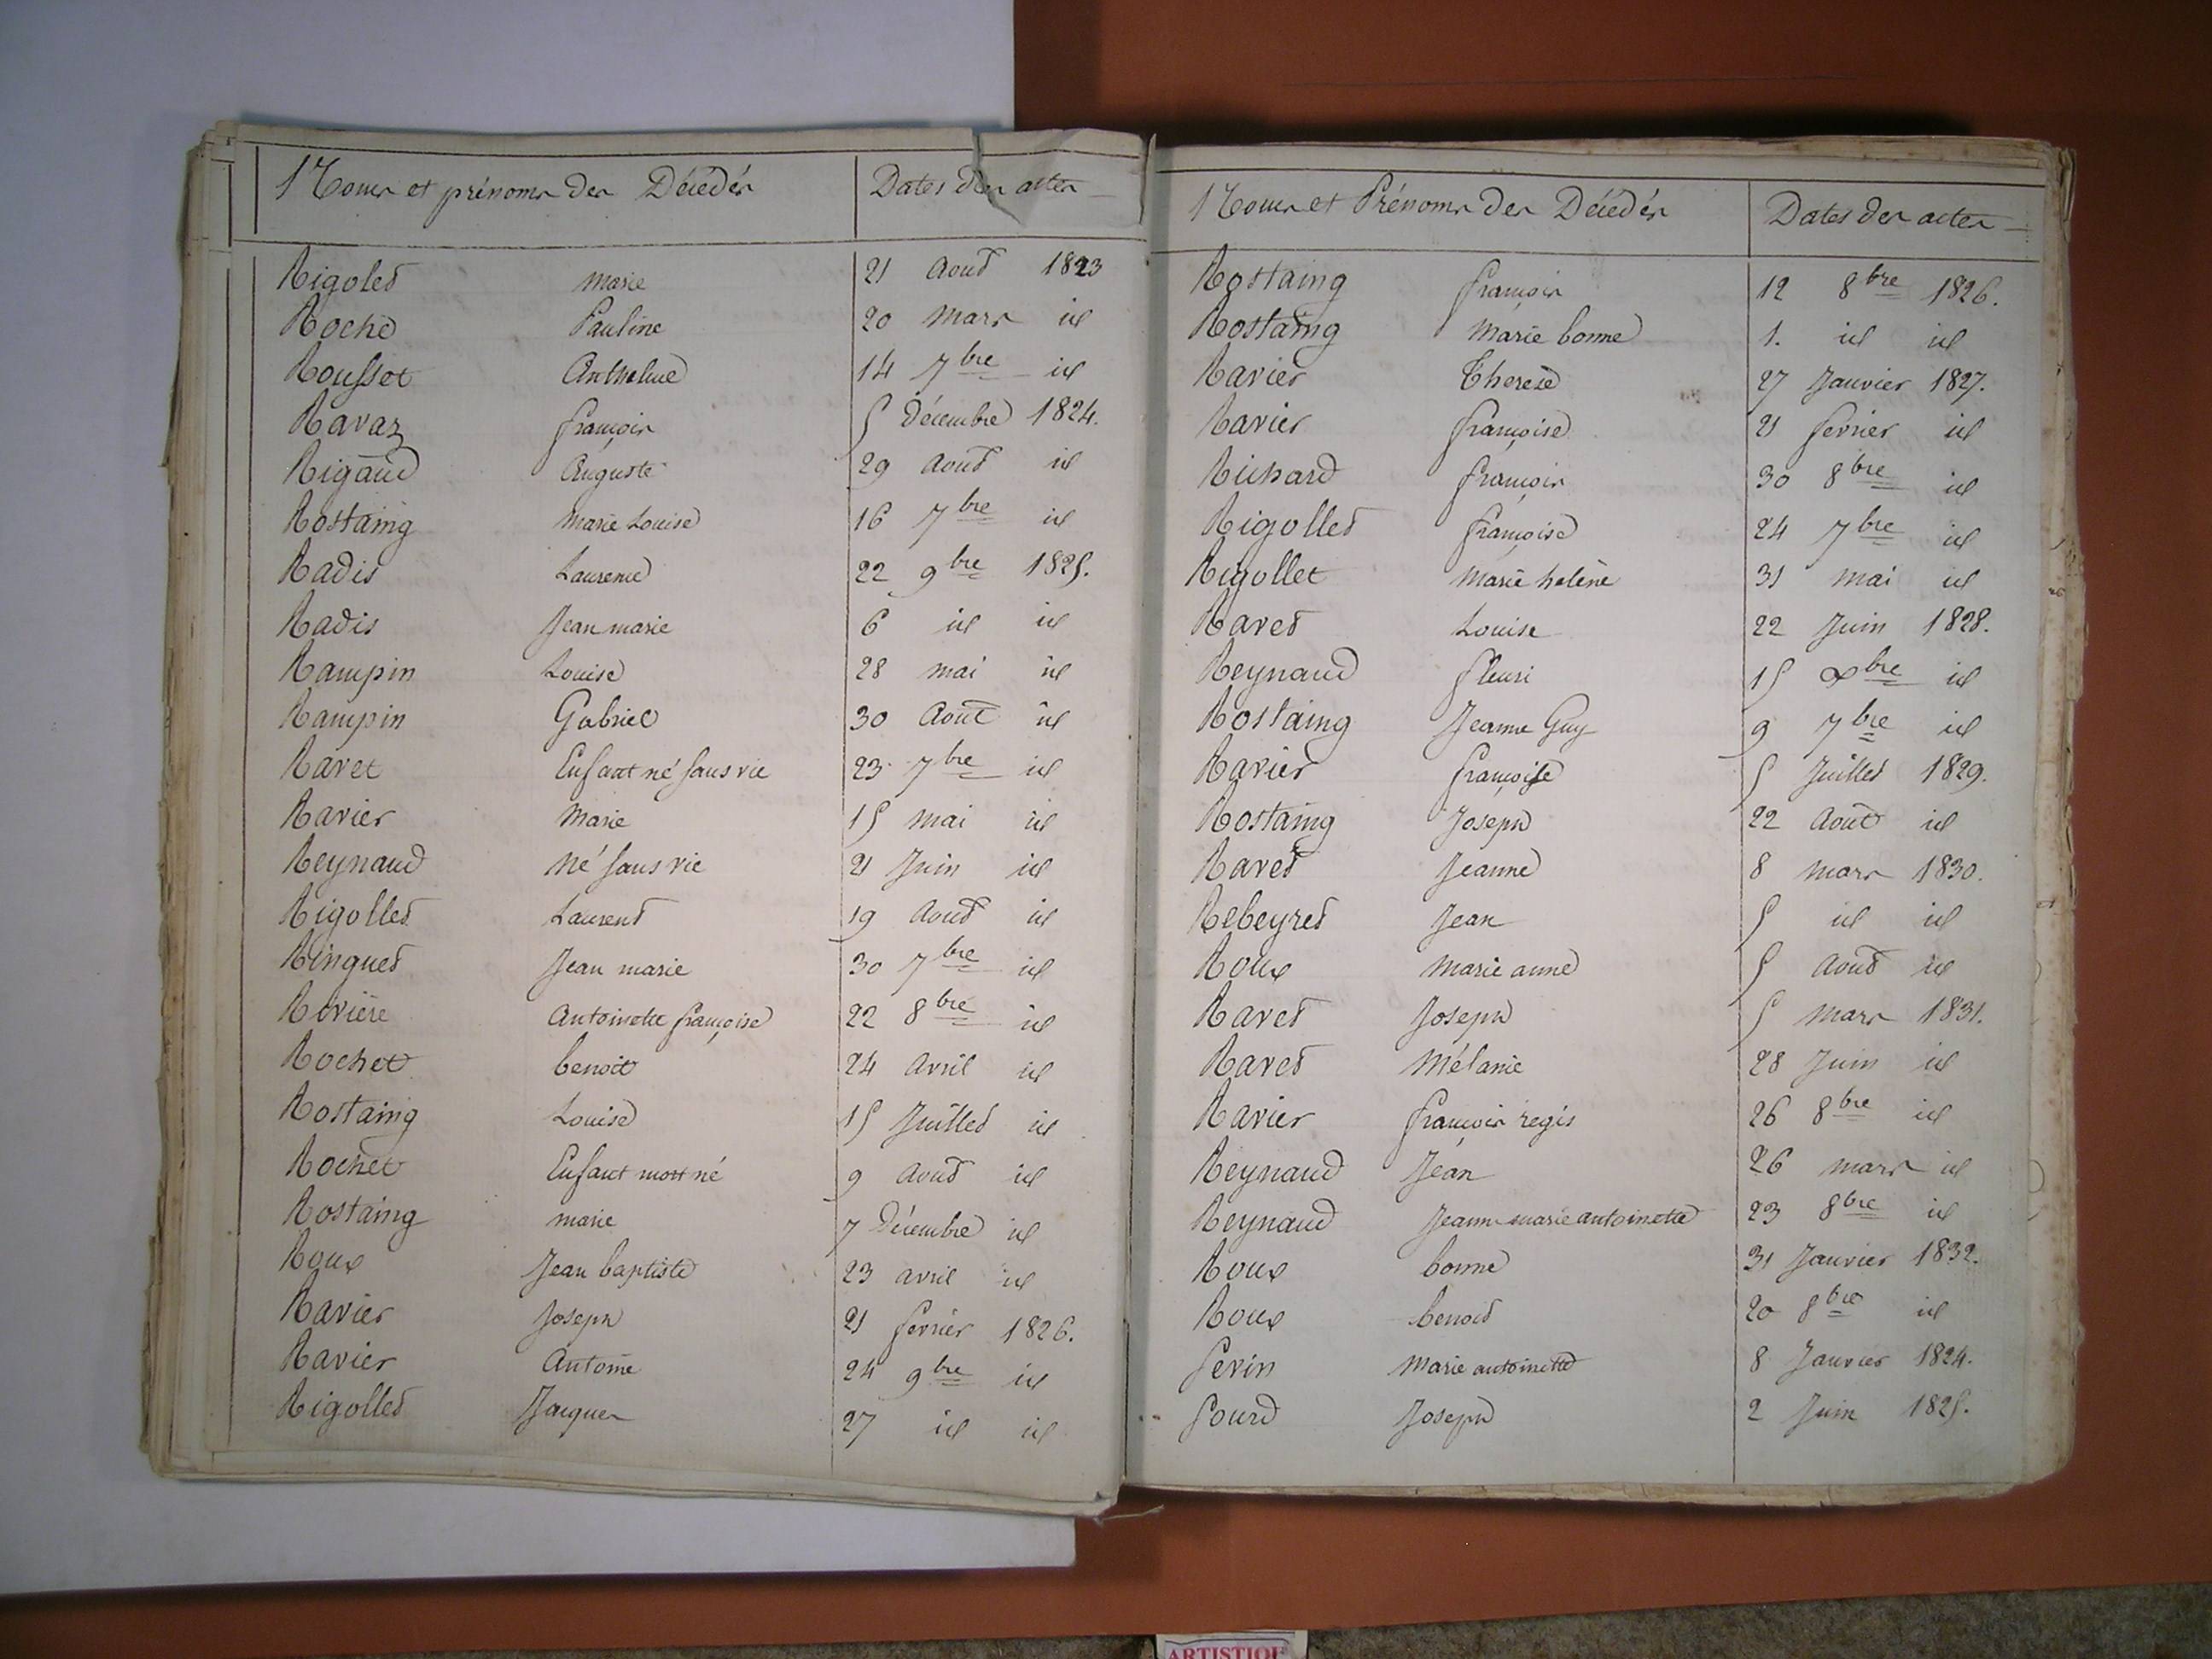 Noms et prénoms des Décédés Dates des actes
Rigolet Marie 21 Aout 1823
Roche Pauline 20 Mars id
Rousset Anthelme 14 7bre id
Ravaz françois 5 Décembre 1824.
Rigaud Auguste 29 Aout id
Rostaing Marie Louise 16 7bre id
Radis Laurence 22 9bre 1825.
Radis Jean marie 6 id id
Rampin Louise 28 mai id
Rampin Gabriel 30 Aout id
Ravet Enfant né sans vie 23 7bre id
Ravier Marie 15 mai id
Reynaud Né sans vie 21 Juin id
Rigollet Laurent 19 Aout id
Ringuet Jean marie 30 7bre id
Rivière Antoinette françoise 22 8bre id
Rochet benoit 24 Avril id
Rostaing Louise 15 Juillet id
Rochet Enfant mort né 9 Aout id
Rostaing marie 7 Décembre id
Roux Jean baptiste 23 avril id
Ravier Joseph 21 fevrier 1826.
Ravier Antoine 24 9bre id
Rigollet Jacques 27 id id
Noms et Prénoms des Décédés Dates des actes
Rostaing françois 12 8bre 1826.
Rostaing Marie bonne 1. id id
Ravier Therese 27 Janvier 1827.
Ravier françoise 21 fevrier id
Richard françois 30 8bre id
Rigollet françoise 24 7bre id
Rigollet Marie heleine 31 mai id
Ravet Louise 22 Juin 1828.
Reynaud fleuri 15 Xbre id
Rostaing Jeanne Guy 9 7bre id
Ravier françoise 5 Juillet 1829.
Rostaing Joseph 22 Août id
Ravet Jeanne 8 mars 1830.
Rebeyret Jean 5 id id
Roux Marie anne 5 Aout id
Ravet Joseph 5 Mars 1831.
Ravet Mélanie 28 Juin id
Ravier françois regis 26 8bre id
Reynaud Jean 26 mars id
Reynaud Jeanne marie antoinette 23 8bre id
Roux bonne 31 Janvier 1832.
Roux benoit 20 8bre id
Serin Marie antoinette 8 Janvier 1824.
Sourd Joseph 2 Juin 1825.
ARTISTIQUE